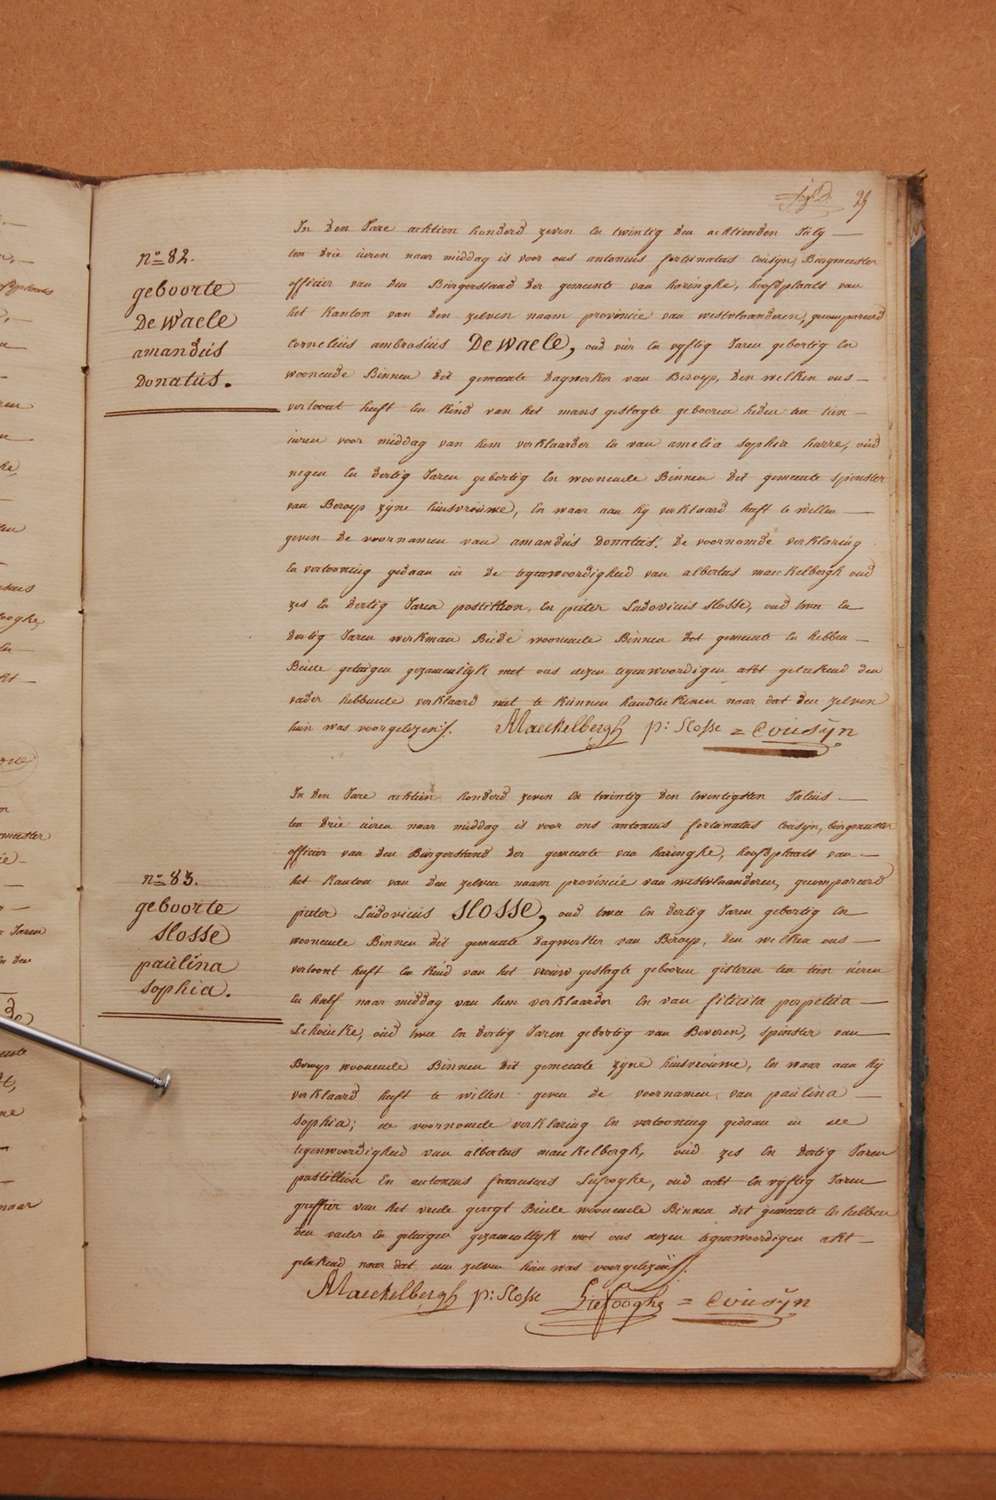 29
nº 82.
geboorte
De Waele
amandus
Donatus.
In den Jare achtien honderd zeven en twintig den achtienden July
ten drie uren naer middag is voor ons antonius fortunatus Cousyn, Burgmeester
officier van den Burgerstaad der gemeente van haringhe, hoofdplaats van
het Kanton van den zelven naem provincie van westvlaanderen, gecompareerd
Cornelius ambrosius De Waele, oud vier en vyftig Jaren gebortig en
woonende Binnen dit gemeente dagwerker van Beroep, den welken ons
vertoont heeft en kind van het mans geslagte geboren heden ten tien
uren voor middag van hem verklaarder en van amelia sophia harre, oud
negen en dertig Jaren gebortig en woonende Binnen dit gemeente spinster
van Beroep zyne huisvrouwe, en waar aan hy verklaard heeft te willen
geven de voornamen van amandus Donatus. De voornomde verklaring
en vertooning gedaan in de tegenwoordigheid van albertus maeckelbergh oud
zes en dertig Jaren postillion, en pieter Ludovicus Slosse, oud twee en
dertig Jaren werkman Beide woonende Binnen dit gemeente en hebben
Beide getuigen gezamentlyk met ons dezen tegenwoordigen akt geteekend den
vader hebbende verklaard niet te kunnen handteekenen naer dat den zelven
hun was voorgelezen
AMaeckelbergh p: Slosse = Cousyn
nº 83.
geboorte
Slosse
paulina
sophia.
In den Jare achtien honderd zeven en twintig den twintigsten Julius
ten drie uren naer middag is voor ons antonius fortunatus Cousyn, burgmeester
officier van den Burgerstand der gemeente van haringhe, hoofdplaats van
het Kanton van den zelven naem provincie van westvlaanderen, gecompareerd
pieter Ludovicus Slosse, oud twee en dertig Jaren gebortig en
woonende Binnen dit gemeente dagwerker van Beroep, den welken ons
vertoont heeft en kind van het vrouw geslagte geboren gisteren ten tien uren
en half naer middag van hem verklaarder en van felicita perpetua
Schoucke, oud twee en dertig Jaren gebortig van Beveren, spinster van
Beroep woonende Binnen dit gemeente zyne huisvrouwe, en waar aan hy
verklaard heeft te willen geven de voornamen van paulina
sophia; de voornomde verklaring en vertooning gedaan in de
tegenwoordigheid van albertus maeckelbergh, oud zes en dertig Jaren
postillion en antonius franciscus Liefooghe, oud acht en vyftig Jaren
greffier van het vrede geregt Beide woonende Binnen dit gemeente en hebben
den vader en getuigen gezamentlyk met ons dezen tegenwoordigen akt
geteekend naer dat den zelven hun was voorgelezen
AMaeckelbergh p: Slosse Liefooghe = Cousyn